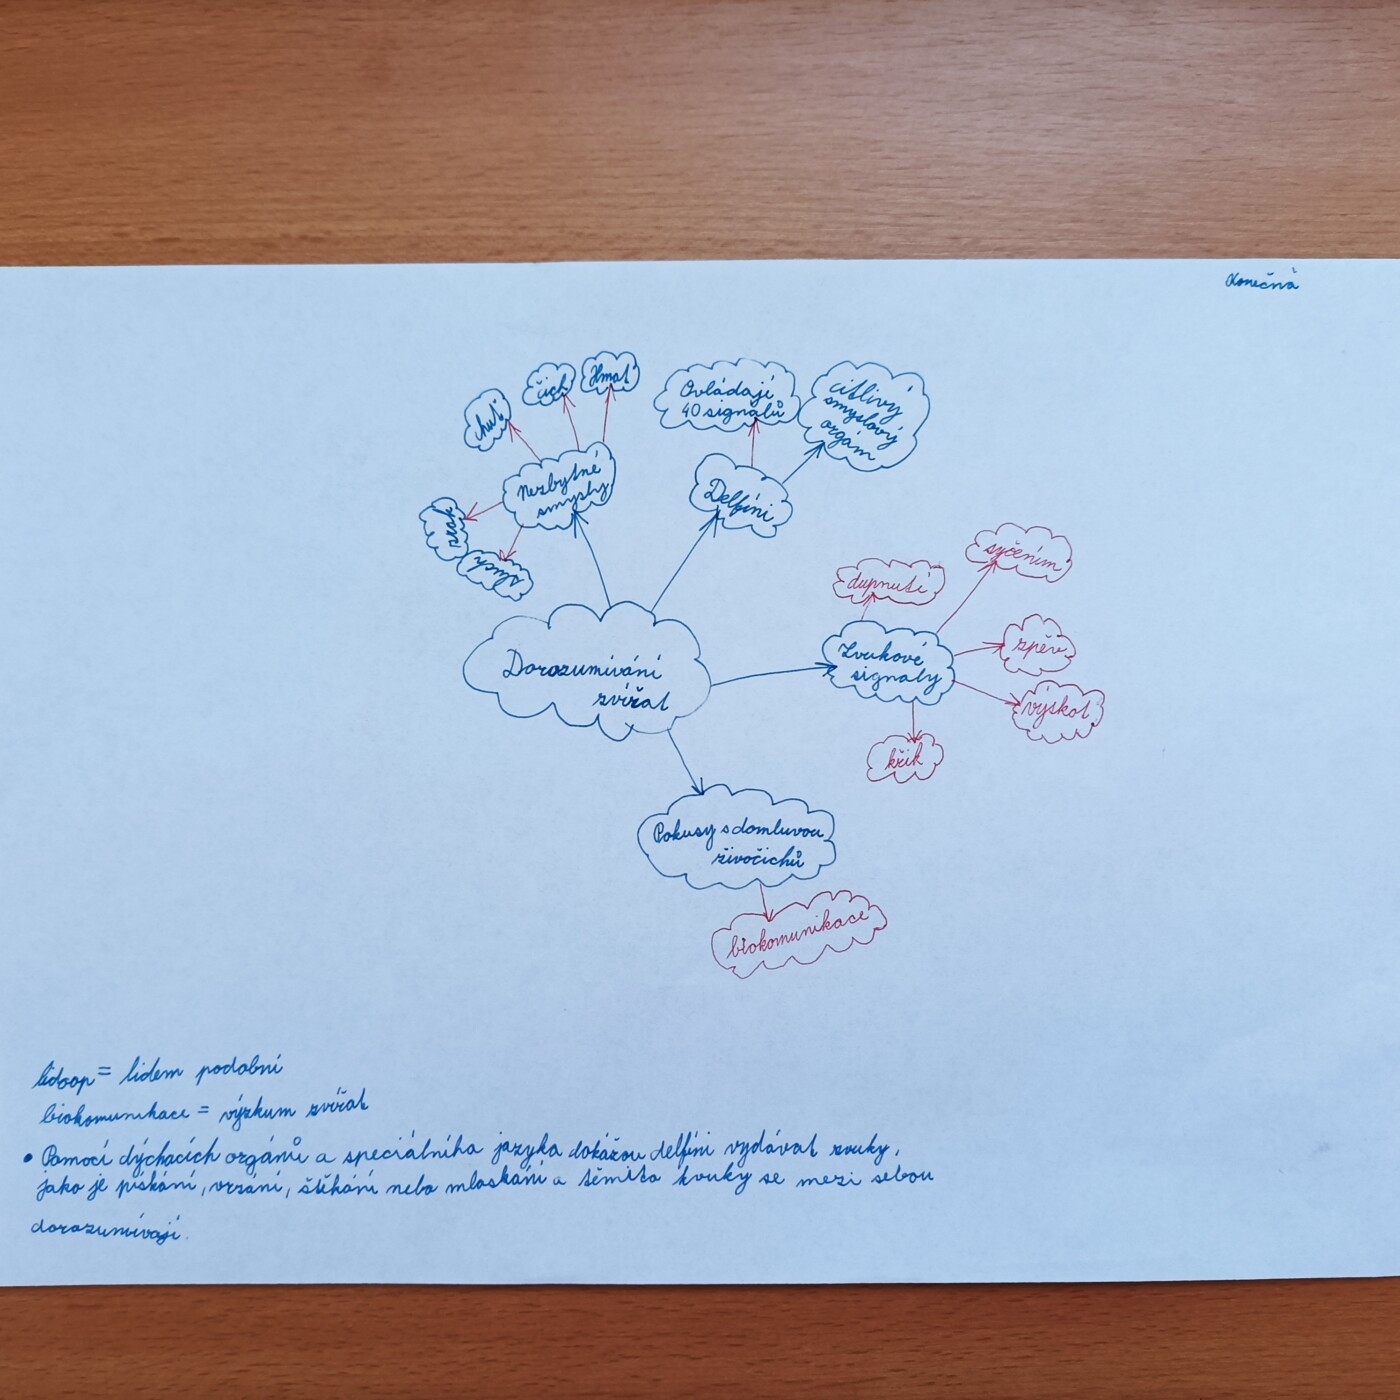 Konečná
chuť
čich
Hmat
Nezbytné
smysly
zrak
sluch
Ovládají
40 signálů
citlivý
smyslový
orgám
Delfíni
Dorozumívání
zvířat
Zvukové
signály
dupnutí
syčením
zpěv
výskot
křik
Pokusy s domluvou
živočichů
biokomunikace
lidoop = lidem podobní
biokomunikace = výzkum zvířat
• Pomocí dýchacích orgánů a speciálního jazyka dokážou delfíni vydávat zvuky,
jako je pískání, vrzání, štěkání nebo mlaskání a těmito zvuky se mezi sebou
dorozumívají.